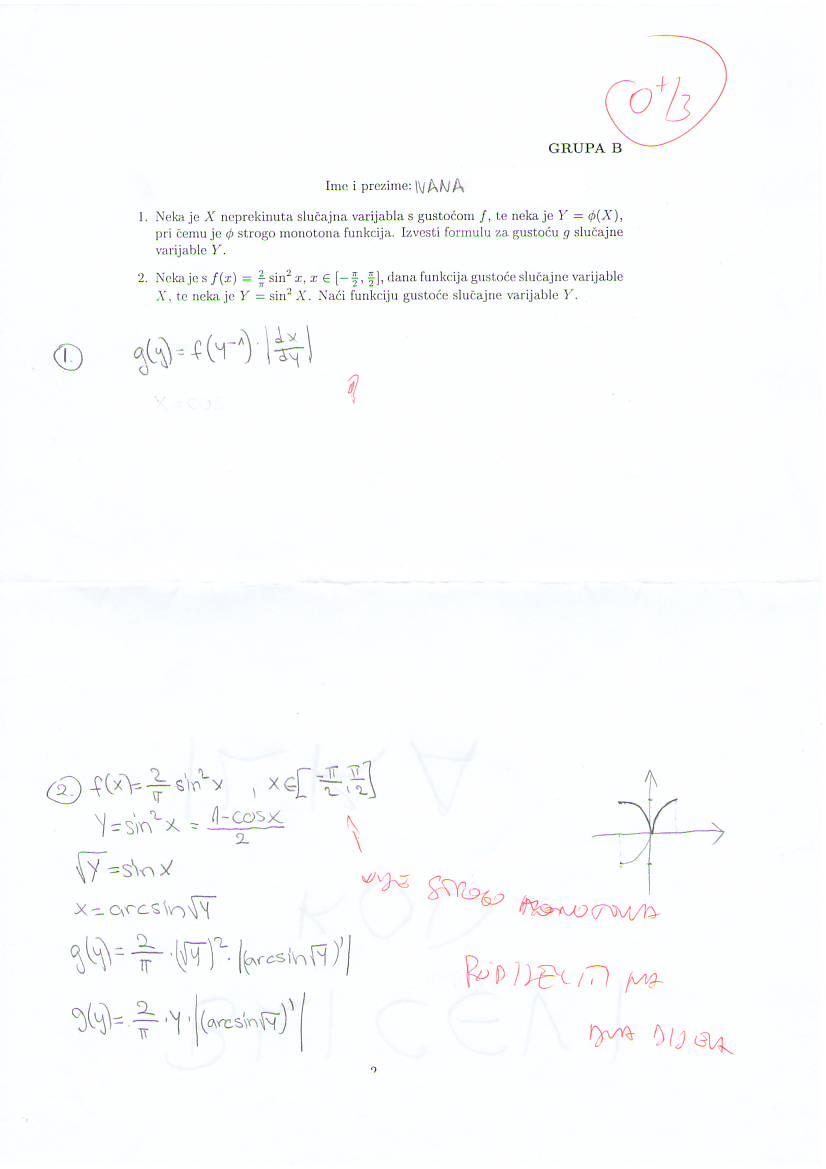 0+/3
GRUPA B
Ime i prezime: IVANA
1. Neka je X neprekinuta slučajna varijabla s gustoćom f, te neka je Y = ϕ(X),
pri čemu je ϕ strogo monotona funkcija. Izvesti formulu za gustoću g slučajne
varijable Y.
2. Neka je s f(x) = 2/π sin² x, x ∈ [−π/2, π/2], dana funkcija gustoće slučajne varijable
X, te neka je Y = sin² X. Naći funkciju gustoće slučajne varijable Y.
1. g(y) = f(y⁻¹) · |dx/dy|
?
2. f(x) = 2/π sin²x, x∈[-π/2, π/2]
Y = sin²x = 1-cosx/2
√Y = sin x
NIJE STROGO MONOTONA
x = arcsin√y
g(y) = 2/π · (√y)² · |(arcsin√y)'|
PODIJELITI NA
g(y) = 2/π · y · |(arcsin√y)'|
DVA DIJELA
2